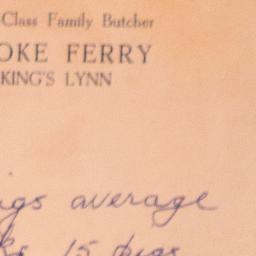 -Class Family Butcher
OKE FERRY
KING'S LYNN
igs average
15 pigs